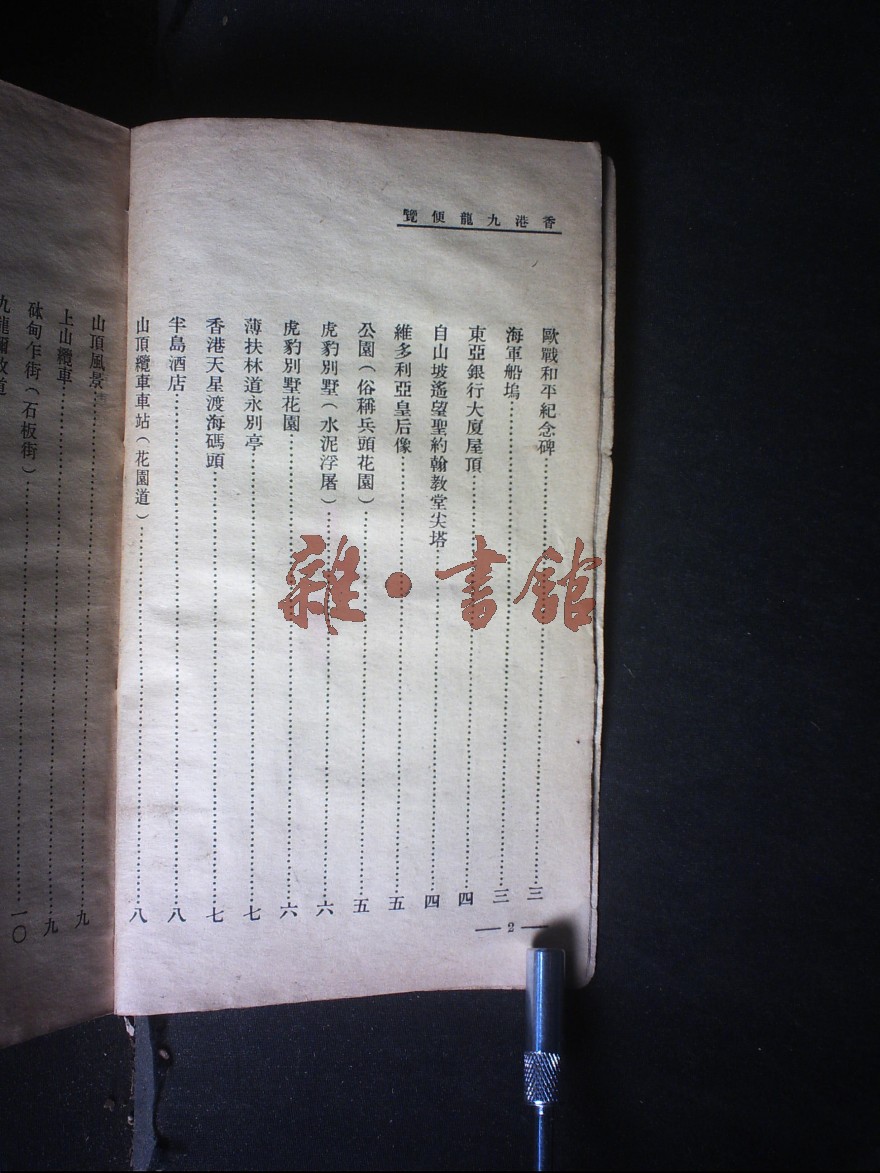 香港九龍便覽
歐戰和平紀念碑……三
海軍船塢……三
東亞銀行大廈屋頂……四
自山坡遙望聖約翰教堂尖塔……四
維多利亞皇后像……五
公園(俗稱兵頭花園)……五
虎豹別墅(水泥浮屠)……六
虎豹別墅花園……六
薄扶林道永別亭……七
香港天星渡海碼頭……七
半島酒店……八
山頂纜車車站(花園道)……八
— 2 —
山頂風景……九
上山纜車……九
砵甸乍街(石板街)……一〇
九龍
雜·書館